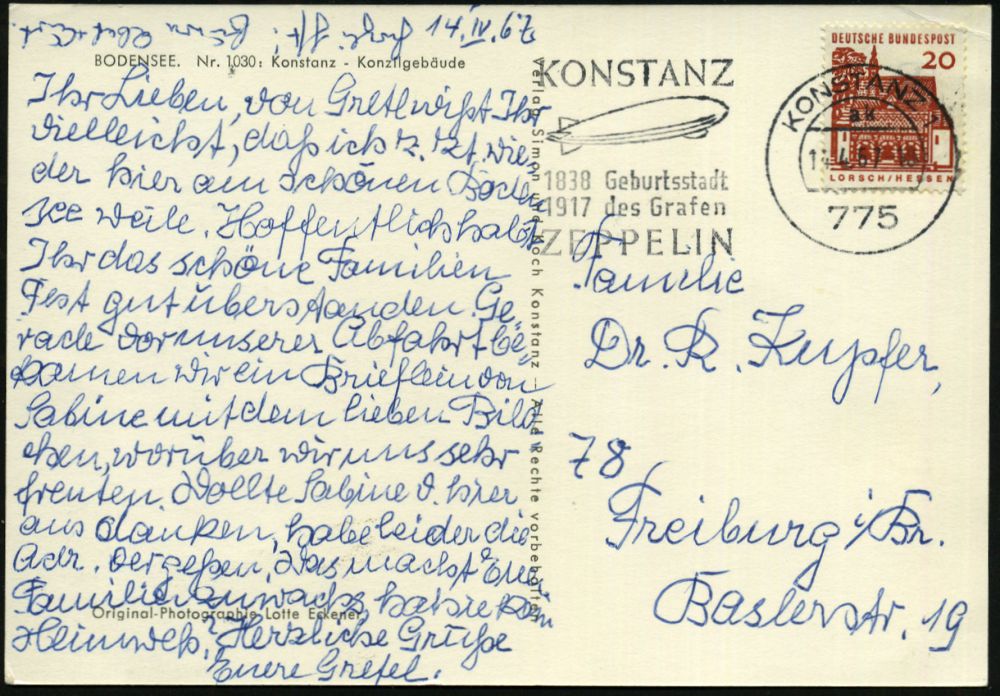 14.IV.67
BODENSEE. Nr. 1030: Konstanz - Konzilgebäude
Ihr Lieben, von Gretl wißt Ihr
vielleicht, daß ich z. Zt. wie-
der hier am schönen Boden
see weile. Hoffentlich habt
Ihr das schöne Familien
Fest gut überstanden. Ge-
rade vor unserer Abfahrt be-
kamen wir ein Brieflein von
Sabine mit dem lieben Bild
chen, worüber wir uns sehr
freuten. Wollte Sabine v. hier
aus danken, habe leider die
Adr. vergeßen. Was macht Euer
Familienzuwachs, hat sie kein
Original-Photographie Lotte Eckener
Heimweh? Herzliche Grüße
Euere Gretel.
Verlag Simon und Koch Konstanz - Alle Rechte vorbehalten
KONSTANZ
1838 Geburtsstadt
1917 des Grafen
ZEPPELIN
DEUTSCHE BUNDESPOST
20
LORSCH/HESSEN
KONSTANZ
775
Familie
Dr. R. Kupfer,
78
Freiburg i/Br.
Baslerstr. 19